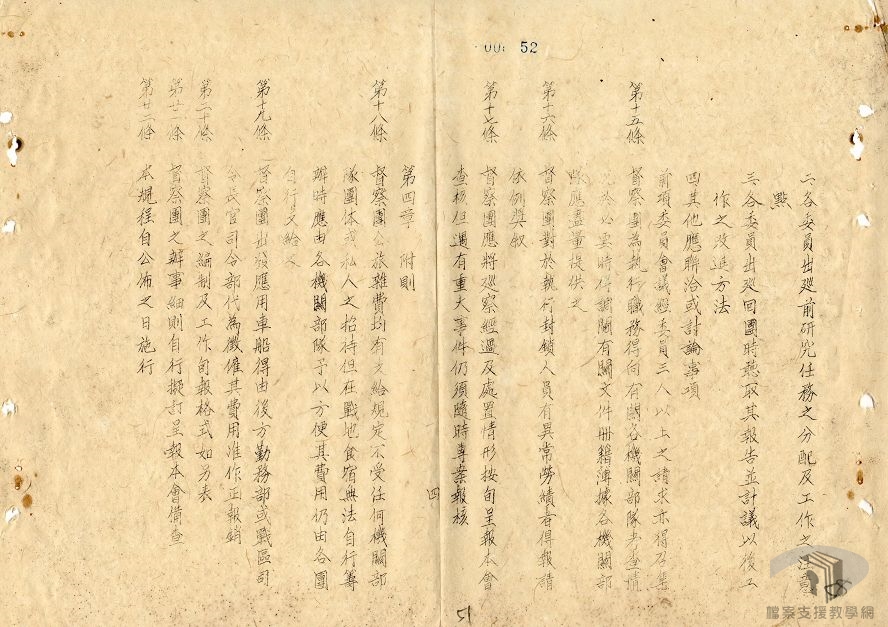 52
二、各委員出巡前研究任務之分配及工作之注意
點
三、各委員出巡回團時聽取其報告並討議以後工
作之改進方法
四其他應聯洽或討論事項
前項委員會議經委員三人以上之請求亦得召集
第十五條 督察團為執行職務得向有關各機關部隊考查情
於必要時得調閱有關文件冊籍簿據各機關部
應盡量提供之
第十六條 督察團對於執行封鎖人員有異常勞績者得報請
依例獎敘
第十七條 督察團應將巡察經過及處置情形按旬呈報本會
查核但遇有重大事件仍須隨時專案報核
四
第四章 附則
第十八條 督察團公旅雜費均有支給規定不受任何機關部
隊團体或私人之招待但在戰地食宿無法自行籌
辦時應由各機關部隊予以方便其費用仍由各團
自行支給之
第十九條 督察團出發應用車船得由後方勤務部或戰區司
令長官司令部代為徵僱其費用准作正報銷
第二十條 督察團之編制及工作旬報格式如另表
第廿一條 督察團之辦事細則自行擬訂呈報本會備查
第廿二條 本規程自公佈之日施行
51
檔案支援教學網